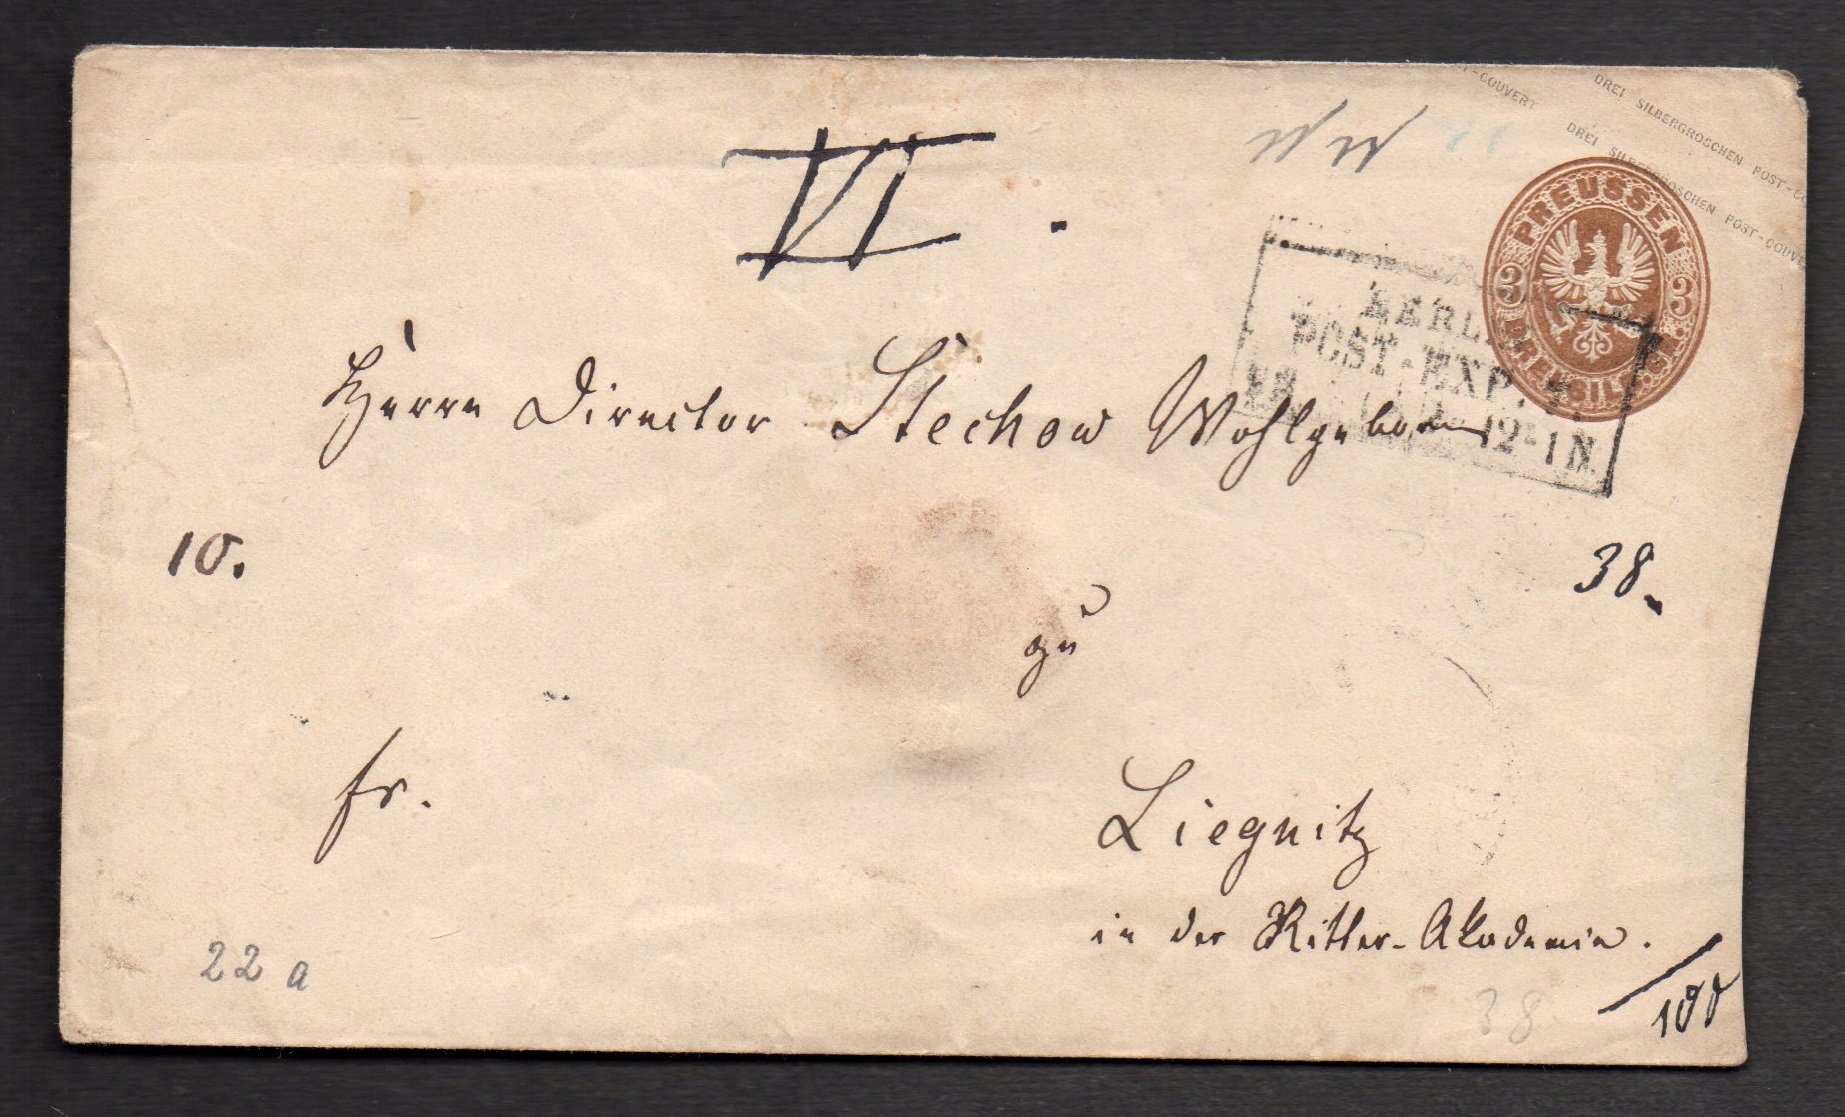 T-COUVERT
DREI SILBERGROSCHEN POST-CO
DREI SILBERGROSCHEN POST-COUVE
VI.
PREUSSEN
3 3
DREI SILB. GR.
BERL
POST-EXP.
12-1N
Herrn Director Stechow Wohlgeboren
10.
38.
zu
fr.
Liegnitz
in der Ritter-Akademie.
22 a
38
100